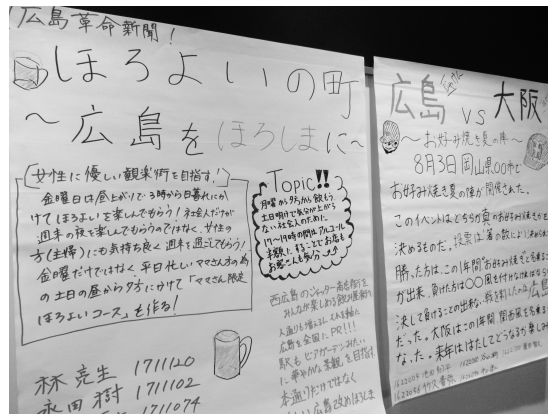 広島革命新聞!
ほろよいの町
〜広島をほろしまに〜
女性に優しい観楽街を目指す!
金曜日は昼上がりで3時から日暮れにか
けてほろよいを楽しんでもらう!社会人だけが
週末の夜を楽しんでもらうのではなく、女性の
方(主婦)にも気持ち良く週末を過ごしてもらう!
金曜だけではなく、平日忙しいママさん方の為
の土日の昼から夕方にかけて「ママさん限定
ほろよいコース」を作る!
林 亮生 1711120
永田 樹 1711102
1711074
Topic!!
月曜から夕方から飲もう
土日明けで気分が上がら
ない社会人のために
17〜19時の間はアルコール
半額にすることでお店も
お客さんも幸分
西広島の
みんなが楽しめる飲み屋街へ
人通りも増え
広島を全国にPR!!!
駅もビアガーデン
に華やかな景観を目指す
本通りだけではなく
広島改めほろしま
広島 vs 大阪
〜お好み焼き夏の陣〜
8月3日岡山県〇〇市で
お好み焼き夏の陣が開催された。
このイベントはどちらが真のお好み焼きかを
決めるものだ。投票は箸の数により決められ
勝った方は、この1年間"お好み焼き"と名乗る
が出来、負けた方は〇〇風を付けなければなら
決して負けることの出来ない戦を制したのは広島
だった。大阪はこの1年間、関西風を名乗る
なった。来年ははたしてどうなるか楽しみ